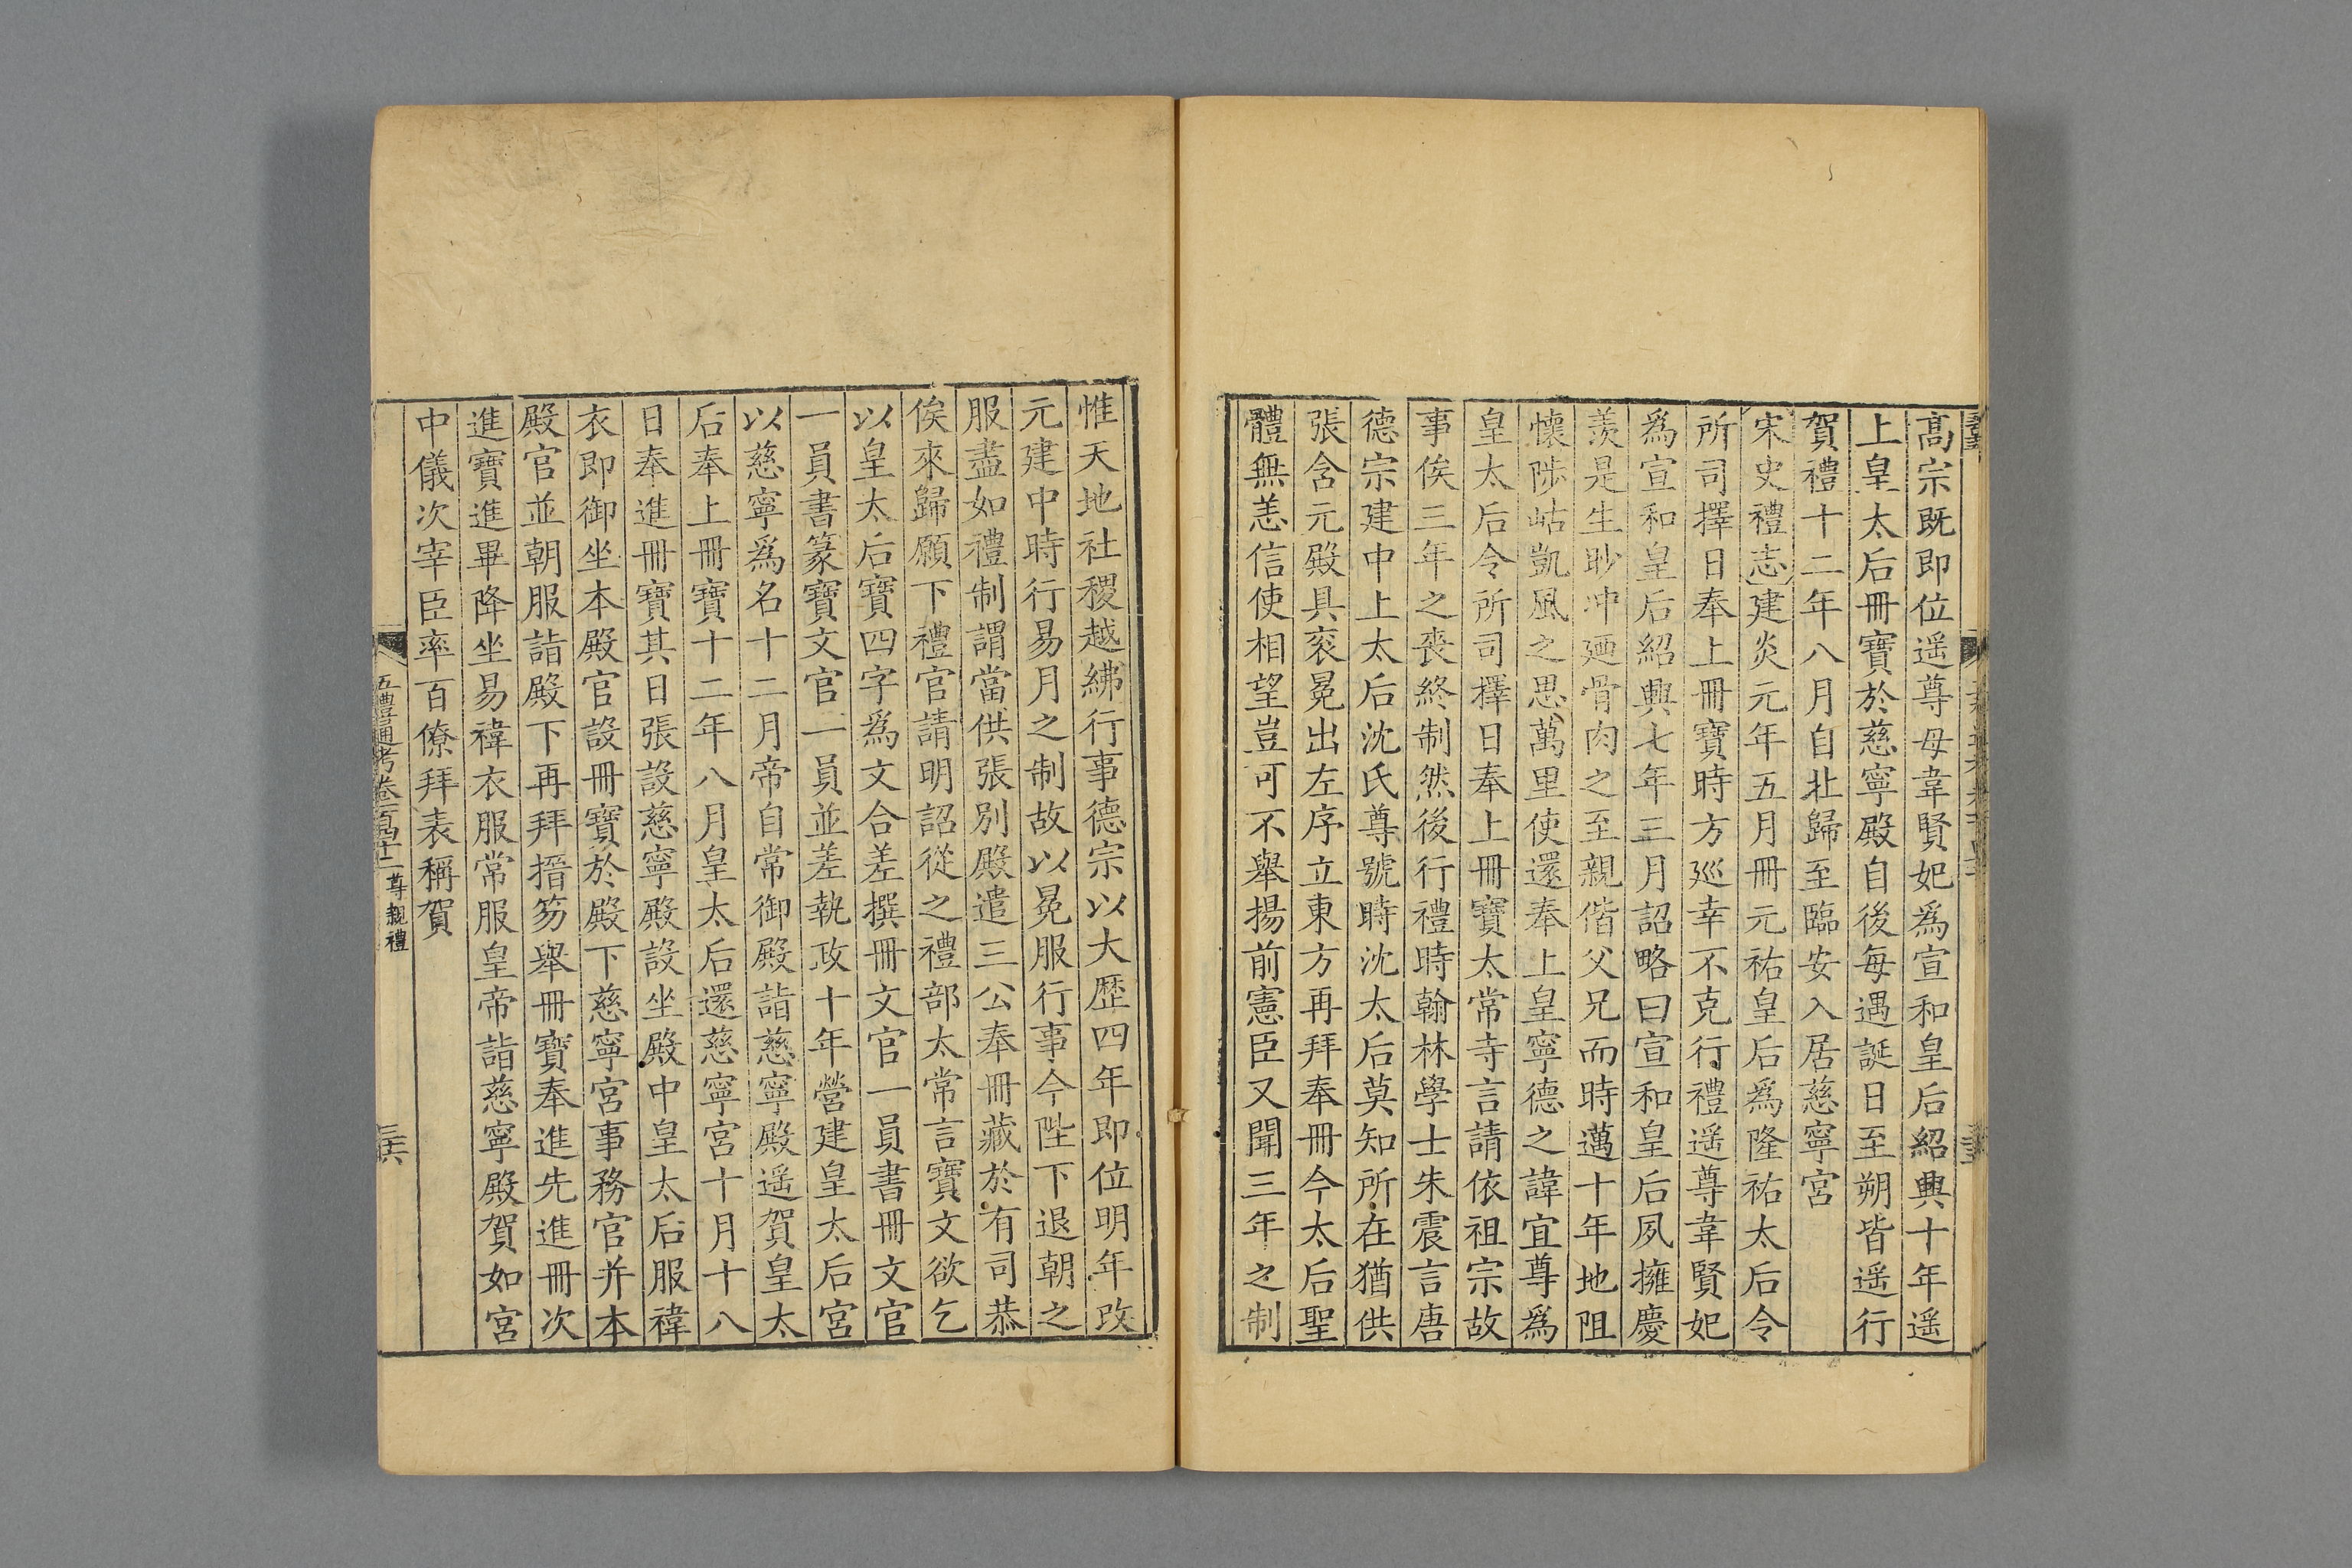 高宗既即位遥尊母韋賢妃爲宣和皇后紹興十年遥
上皇太后冊寶於慈寧殿自後每遇誕日至朔皆遥行
賀禮十二年八月自北歸至臨安入居慈寧宮
宋史禮志建炎元年五月冊元祐皇后爲隆祐太后令
所司擇日奉上冊寶時方廵幸不克行禮遥尊韋賢妃
爲宣和皇后紹興七年三月詔略曰宣和皇后夙擁慶
羨是生眇冲廼骨肉之至親偕父兄而時邁十年地阻
懷陟岵凱風之思萬里使還奉上皇寧德之諱宜尊爲
皇太后令所司擇日奉上冊寶太常寺言請依祖宗故
事俟三年之喪終制然後行禮時翰林學士朱震言唐
德宗建中上太后沈氏尊號時沈太后莫知所在猶供
張含元殿具衮冕出左序立東方再拜奉冊今太后聖
體無恙信使相望豈可不舉揚前憲臣又聞三年之制
惟天地社稷越紼行事德宗以大歴四年即位明年改
元建中時行易月之制故以冕服行事今陛下退朝之
服盡如禮制謂當供張別殿遣三公奉冊藏於有司恭
俟來歸願下禮官請明詔從之禮部太常言寶文欲乞
以皇太后寶四字爲文合差撰冊文官一員書冊文官
一員書篆寶文官一員並差執政十年營建皇太后宮
以慈寧爲名十二月帝自常御殿詣慈寧殿遥賀皇太
后奉上冊寶十二年八月皇太后還慈寧宮十月十八
日奉進冊寶其日張設慈寧殿設坐殿中皇太后服褘
衣即御坐本殿官設冊寶於殿下慈寧宮事務官并本
殿官並朝服詣殿下再拜搢笏舉冊寶奉進先進冊次
進寶進畢降坐易褘衣服常服皇帝詣慈寧殿賀如宮
中儀次宰臣率百僚拜表稱賀
五禮通考卷一百四十二 尊親禮
三六